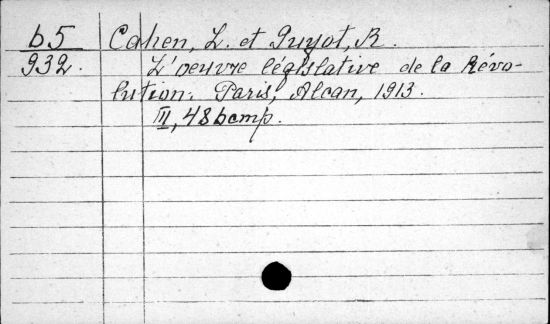 b5 Cahen, L. et Guyot, R.
932. L'oeuvre législative de la Révo-
lution. Paris, Alcan, 1913.
III, 486 стр.